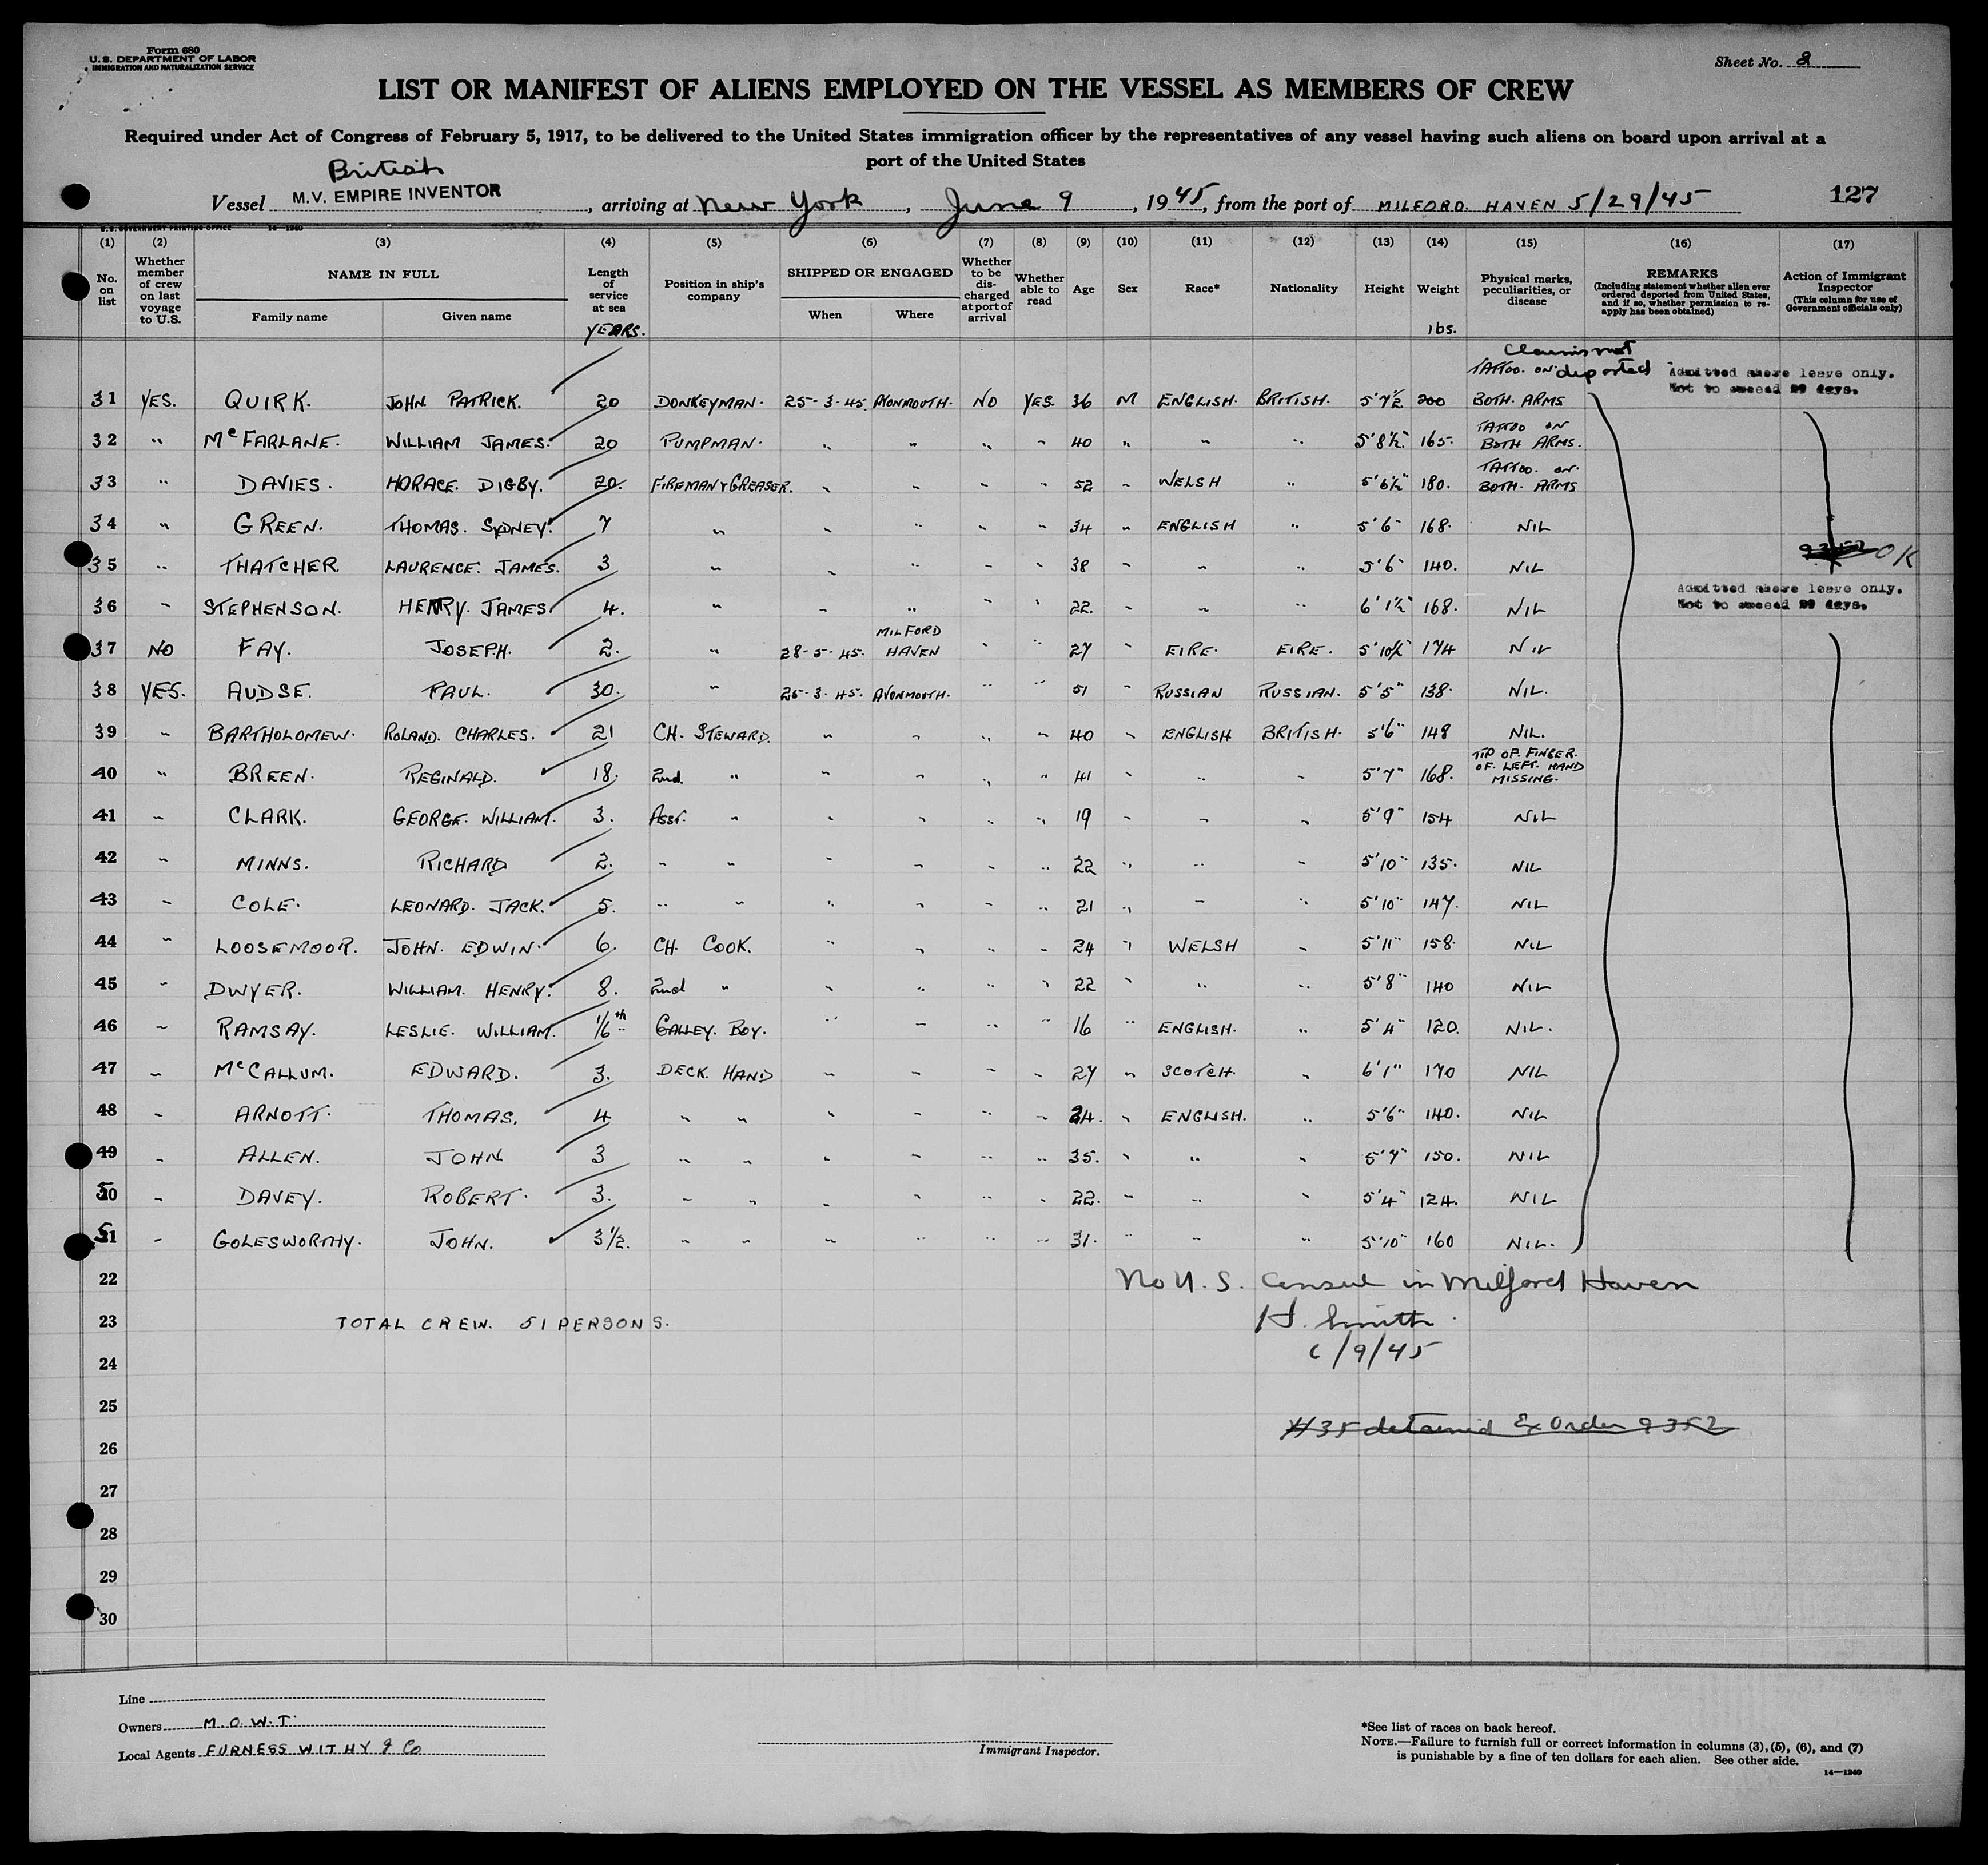 Form 680
U. S. DEPARTMENT OF LABOR
IMMIGRATION AND NATURALIZATION SERVICE
Sheet No. 2
LIST OR MANIFEST OF ALIENS EMPLOYED ON THE VESSEL AS MEMBERS OF CREW
Required under Act of Congress of February 5, 1917, to be delivered to the United States immigration officer by the representatives of any vessel having such aliens on board upon arrival at a
port of the United States
British
Vessel M.V. EMPIRE INVENTOR, arriving at New York, June 9, 1945, from the port of MILFORD HAVEN 5/29/45
127
U. S. GOVERNMENT PRINTING OFFICE 14—1940
(1) (2) (3) (4) (5) (6) (7) (8) (9) (10) (11) (12) (13) (14) (15) (16) (17)
No. on list
Whether member of crew on last voyage to U.S.
NAME IN FULL
Family name Given name
Length of service at sea YEARS.
Position in ship's company
SHIPPED OR ENGAGED
When Where
Whether to be discharged at port of arrival
Whether able to read
Age
Sex
Race*
Nationality
Height
Weight lbs.
Physical marks, peculiarities, or disease
REMARKS
(Including statement whether alien ever ordered deported from United States, and if so, whether permission to re-apply has been obtained)
Action of Immigrant Inspector
(This column for use of Government officials only)
Claims not deported
Admitted shore leave only.
Not to exceed 29 days.
31 YES. QUIRK. JOHN PATRICK. 20 DONKEYMAN. 25-3-45. AVONMOUTH. NO YES. 36 M ENGLISH. BRITISH. 5'7½ 200 TATTOO. ON BOTH. ARMS
32 " McFARLANE. WILLIAM JAMES. 20 PUMPMAN. " " " " 40 " " " 5'8½" 165. TATTOO ON BOTH ARMS.
33 " DAVIES. HORACE. DIGBY. 20. FIREMAN & GREASER. " " " " 52 " WELSH " 5'6½" 180. TATTOO. ON. BOTH. ARMS
34 " GREEN. THOMAS. SYDNEY. 7 " " " " " 34 " ENGLISH " 5'6" 168. NIL
35 " THATCHER LAURENCE. JAMES. 3 " " " " " 38 " " " 5'6" 140. NIL 9352 OK
36 " STEPHENSON. HENRY. JAMES 4. " " " " " 22. " " " 6'1½" 168. NIL
Admitted shore leave only.
Not to exceed 29 days.
37 NO FAY. JOSEPH. 2. " 28-5-45. MILFORD HAVEN " " 27 " EIRE. EIRE. 5'10½" 174 NIL
38 YES. AUDSE. PAUL. 30. " 25-3-45. AVONMOUTH. " " 51 " RUSSIAN RUSSIAN. 5'5" 138. NIL.
39 " BARTHOLOMEW. ROLAND. CHARLES. 21 CH. STEWARD. " " " " 40 " ENGLISH BRITISH. 5'6" 148 NIL.
40 " BREEN. REGINALD. 18. 2nd. " " " " " 41 " " " 5'7" 168. TIP OF. FINGER. OF. LEFT. HAND MISSING.
41 " CLARK. GEORGE. WILLIAM. 3. Asst. " " " " " 19 " " " 5'9" 154 NIL
42 " MINNS. RICHARD 2. " " " " " " 22 " " " 5'10" 135. NIL
43 " COLE. LEONARD. JACK. 5. " " " " " " 21 " " " 5'10" 147. NIL
44 " LOOSEMOOR. JOHN. EDWIN. 6. CH. COOK. " " " " 24 " WELSH " 5'11" 158. NIL
45 " DWYER. WILLIAM. HENRY. 8. 2nd " " " " " 22 " " " 5'8" 140 NIL
46 " RAMSAY. LESLIE. WILLIAM. 1/6th GALLEY. BOY. " " " " 16 " ENGLISH. " 5'4" 120. NIL.
47 " McCALLUM. EDWARD. 3. DECK. HAND " " " " 27 " SCOTCH. " 6'1" 170 NIL
48 " ARNOTT. THOMAS. 4 " " " " " " 24. " ENGLISH. " 5'6" 140. NIL
49 " ALLEN. JOHN 3 " " " " " " 35. " " " 5'7" 150. NIL
50 " DAVEY. ROBERT. 3. " " " " " " 22. " " " 5'4" 124. NIL
51 " GOLESWORTHY. JOHN. 3½. " " " " " " 31. " " " 5'10" 160 NIL.
22 No U.S. Consul in Milford Haven
23 TOTAL CREW. 51 PERSONS. H. Smith
24 6/9/45
25 #35 detained Ex Order 9352
26
27
28
29
30
Line
Owners M.O.W.T.
Local Agents FURNESS WITHY & Co
Immigrant Inspector.
*See list of races on back hereof.
NOTE.—Failure to furnish full or correct information in columns (3), (5), (6), and (7)
is punishable by a fine of ten dollars for each alien. See other side.
14—1940